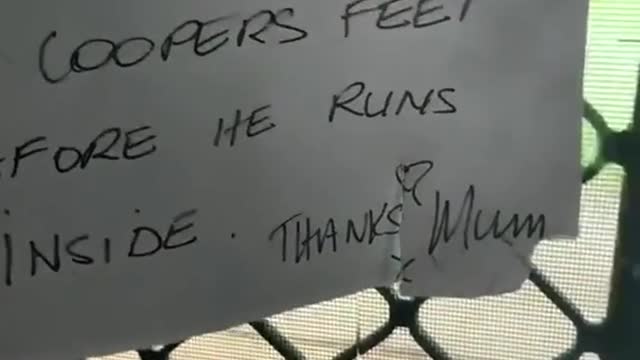 COOPERS FEET
EFORE HE RUNS
INSIDE. THANKS Mum
x